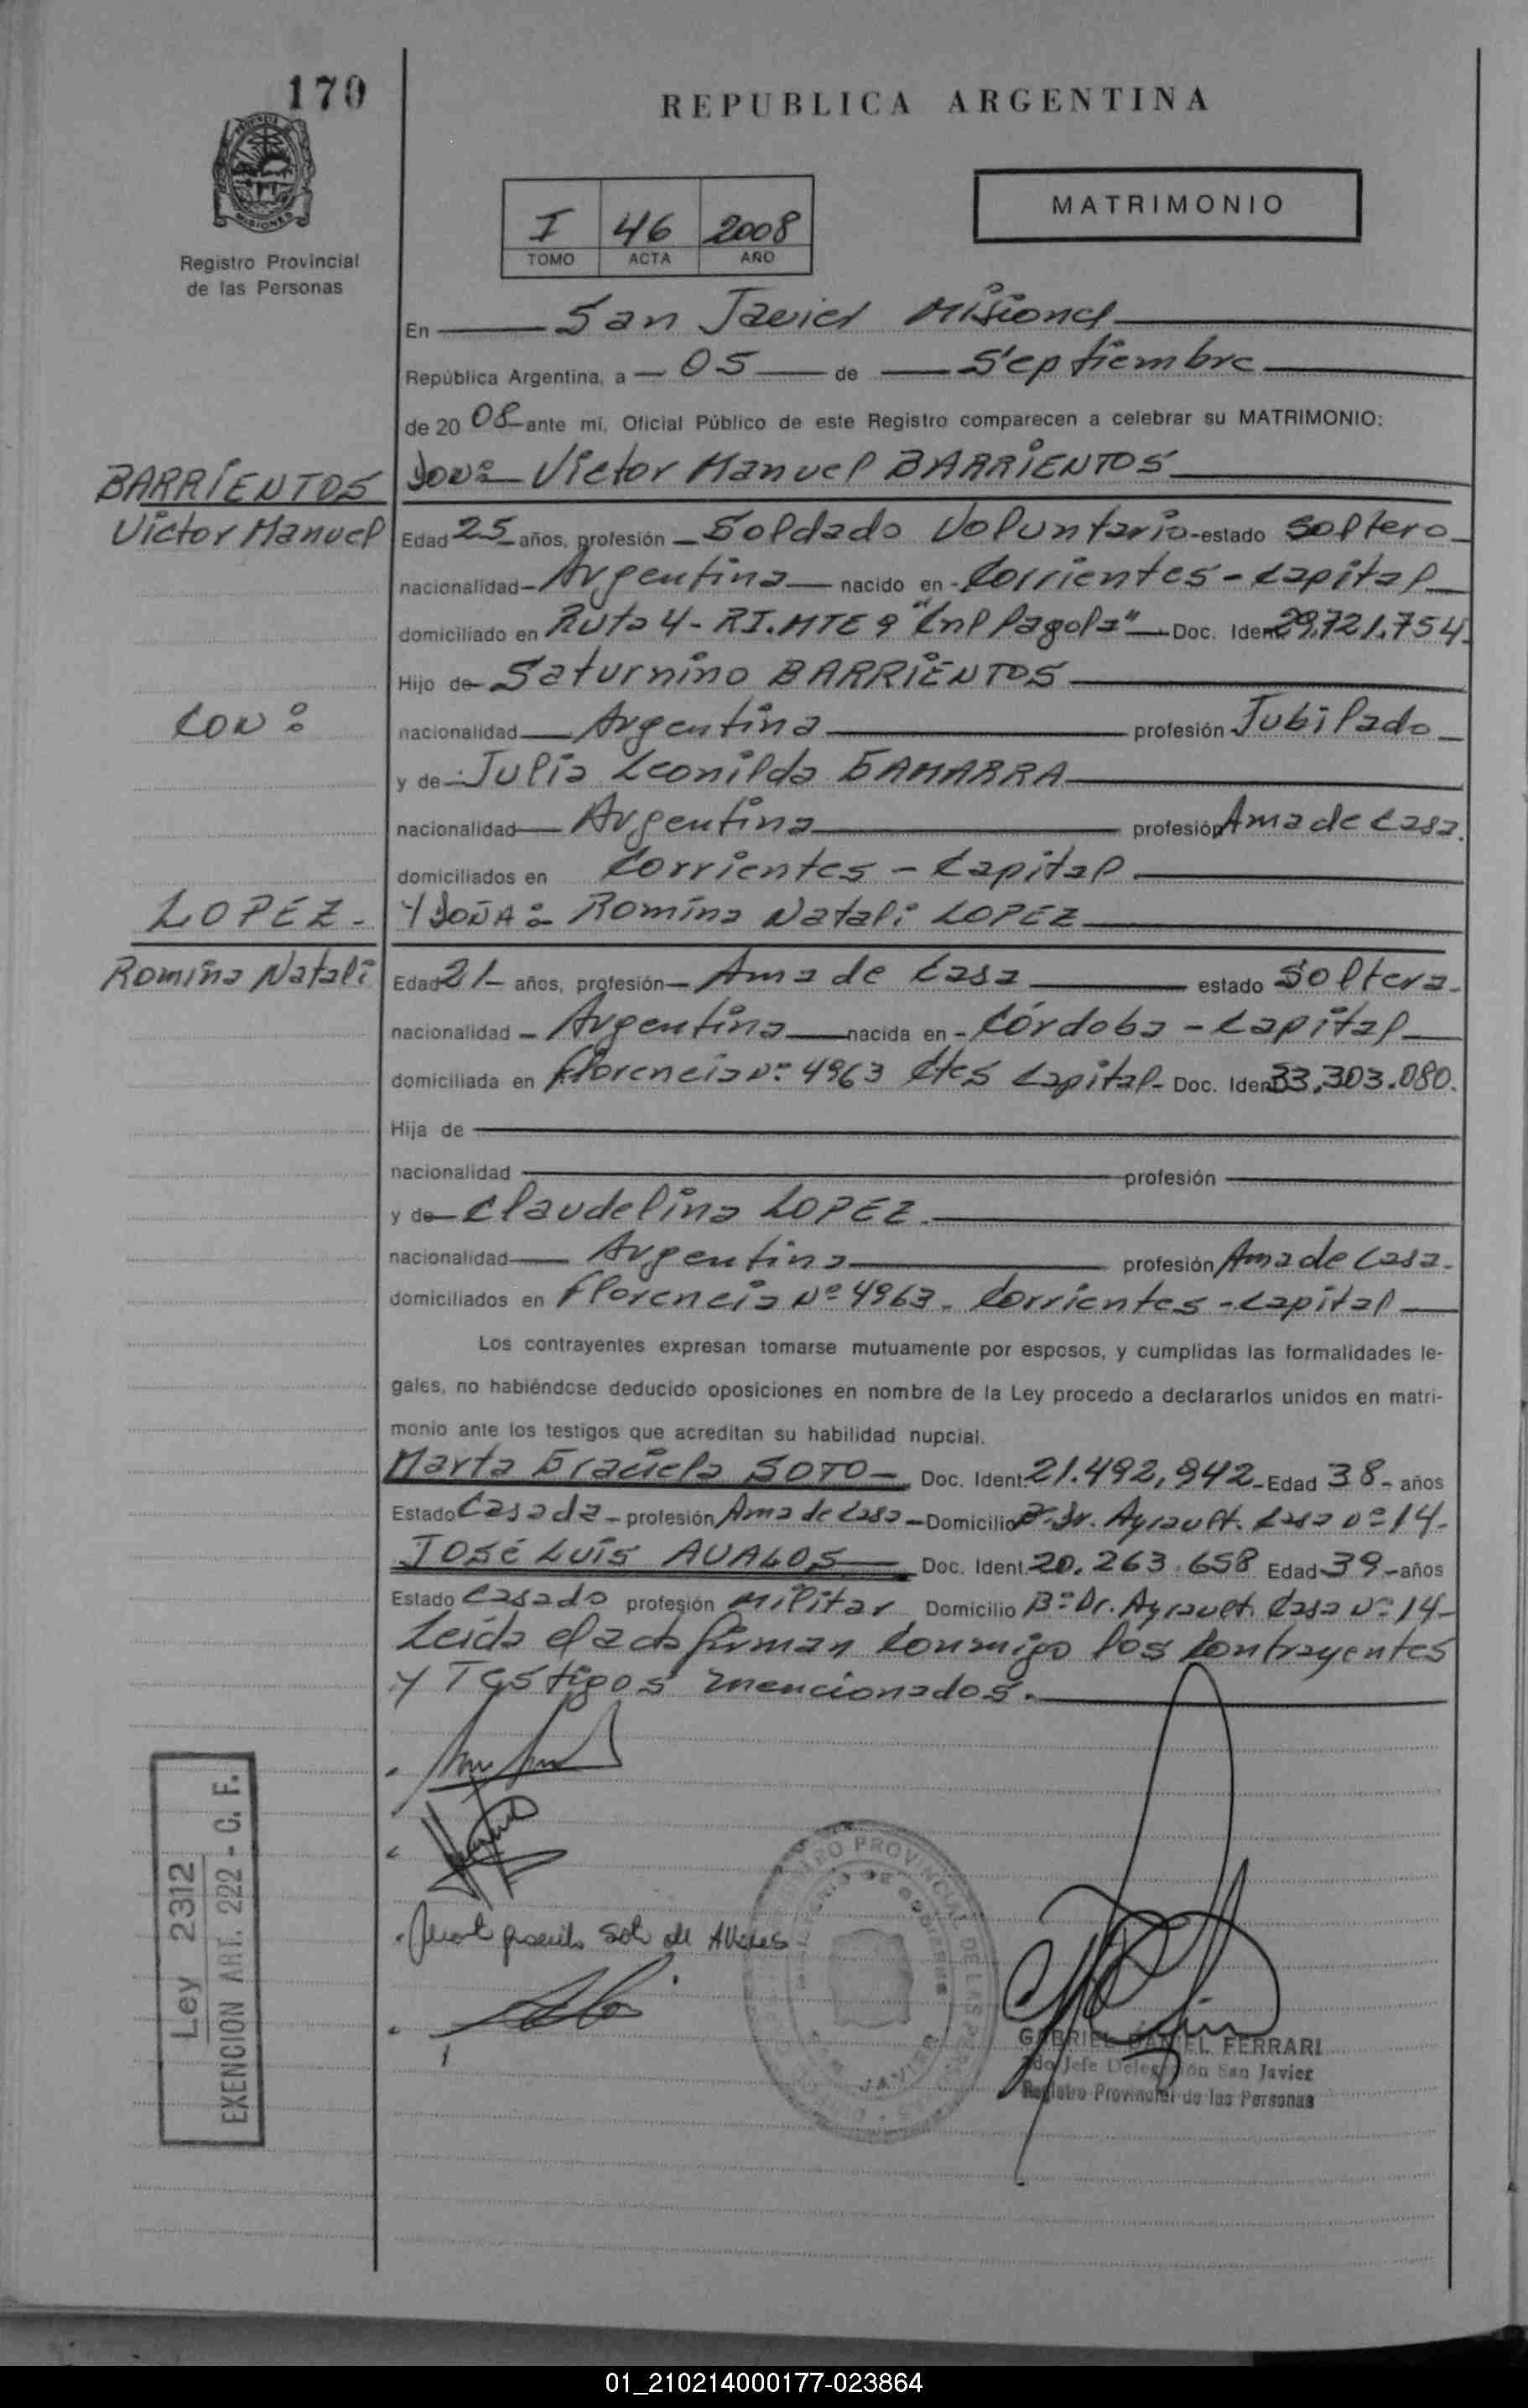 170
REPUBLICA ARGENTINA
MATRIMONIO
I 46 2008
TOMO ACTA AÑO
Registro Provincial
de las Personas
En San Javier Misiones
República Argentina, a 05 de Septiembre
de 20 08 ante mí, Oficial Público de este Registro comparecen a celebrar su MATRIMONIO:
BARRIENTOS
Victor Manuel
DON: Victor Manuel BARRIENTOS
Edad 25 años, profesión Soldado Voluntario estado Soltero
nacionalidad Argentina nacido en Corrientes - Capital
domiciliado en Ruta 4 - RI. MTE 9 "Cnl Pagola" Doc. Ident. 29.721.754.
Hijo de Saturnino BARRIENTOS
CON:
nacionalidad Argentina profesión Jubilado
y de Julia Leonilda GAMARRA
nacionalidad Argentina profesión Ama de Casa.
domiciliados en Corrientes - Capital.
LOPEZ.
Romina Natali
Y DOÑA: Romina Natali LOPEZ
Edad 21 años, profesión Ama de Casa estado Soltera.
nacionalidad Argentina nacida en Córdoba - Capital
domiciliada en Florencia Nº 4963 Ctes Capital Doc. Ident. 33.303.080.
Hija de
nacionalidad profesión
y de Claudelina LOPEZ.
nacionalidad Argentina profesión Ama de Casa.
domiciliados en Florencia Nº 4963. Corrientes - Capital
Los contrayentes expresan tomarse mutuamente por esposos, y cumplidas las formalidades le-
gales, no habiéndose deducido oposiciones en nombre de la Ley procedo a declararlos unidos en matri-
monio ante los testigos que acreditan su habilidad nupcial.
Marta Graciela SOTO Doc. Ident. 21.492.942 Edad 38 años
Estado Casada profesión Ama de Casa Domicilio Bº Dr. Ayrault. Casa Nº 14.
JOSÉ LUIS AVALOS Doc. Ident. 20.263.658 Edad 39 años
Estado Casado profesión Militar Domicilio Bº Dr. Ayrault. Casa Nº 14
Leída el acta firman conmigo los contrayentes
y Testigos mencionados.
Ley 2312
EXENCION ART. 222 - C. F.
REGISTRO PROVINCIAL DE LAS PERSONAS
SAN JAVIER
GABRIEL DANIEL FERRARI
2do Jefe Delegación San Javier
Registro Provincial de las Personas
01_210214000177-023864